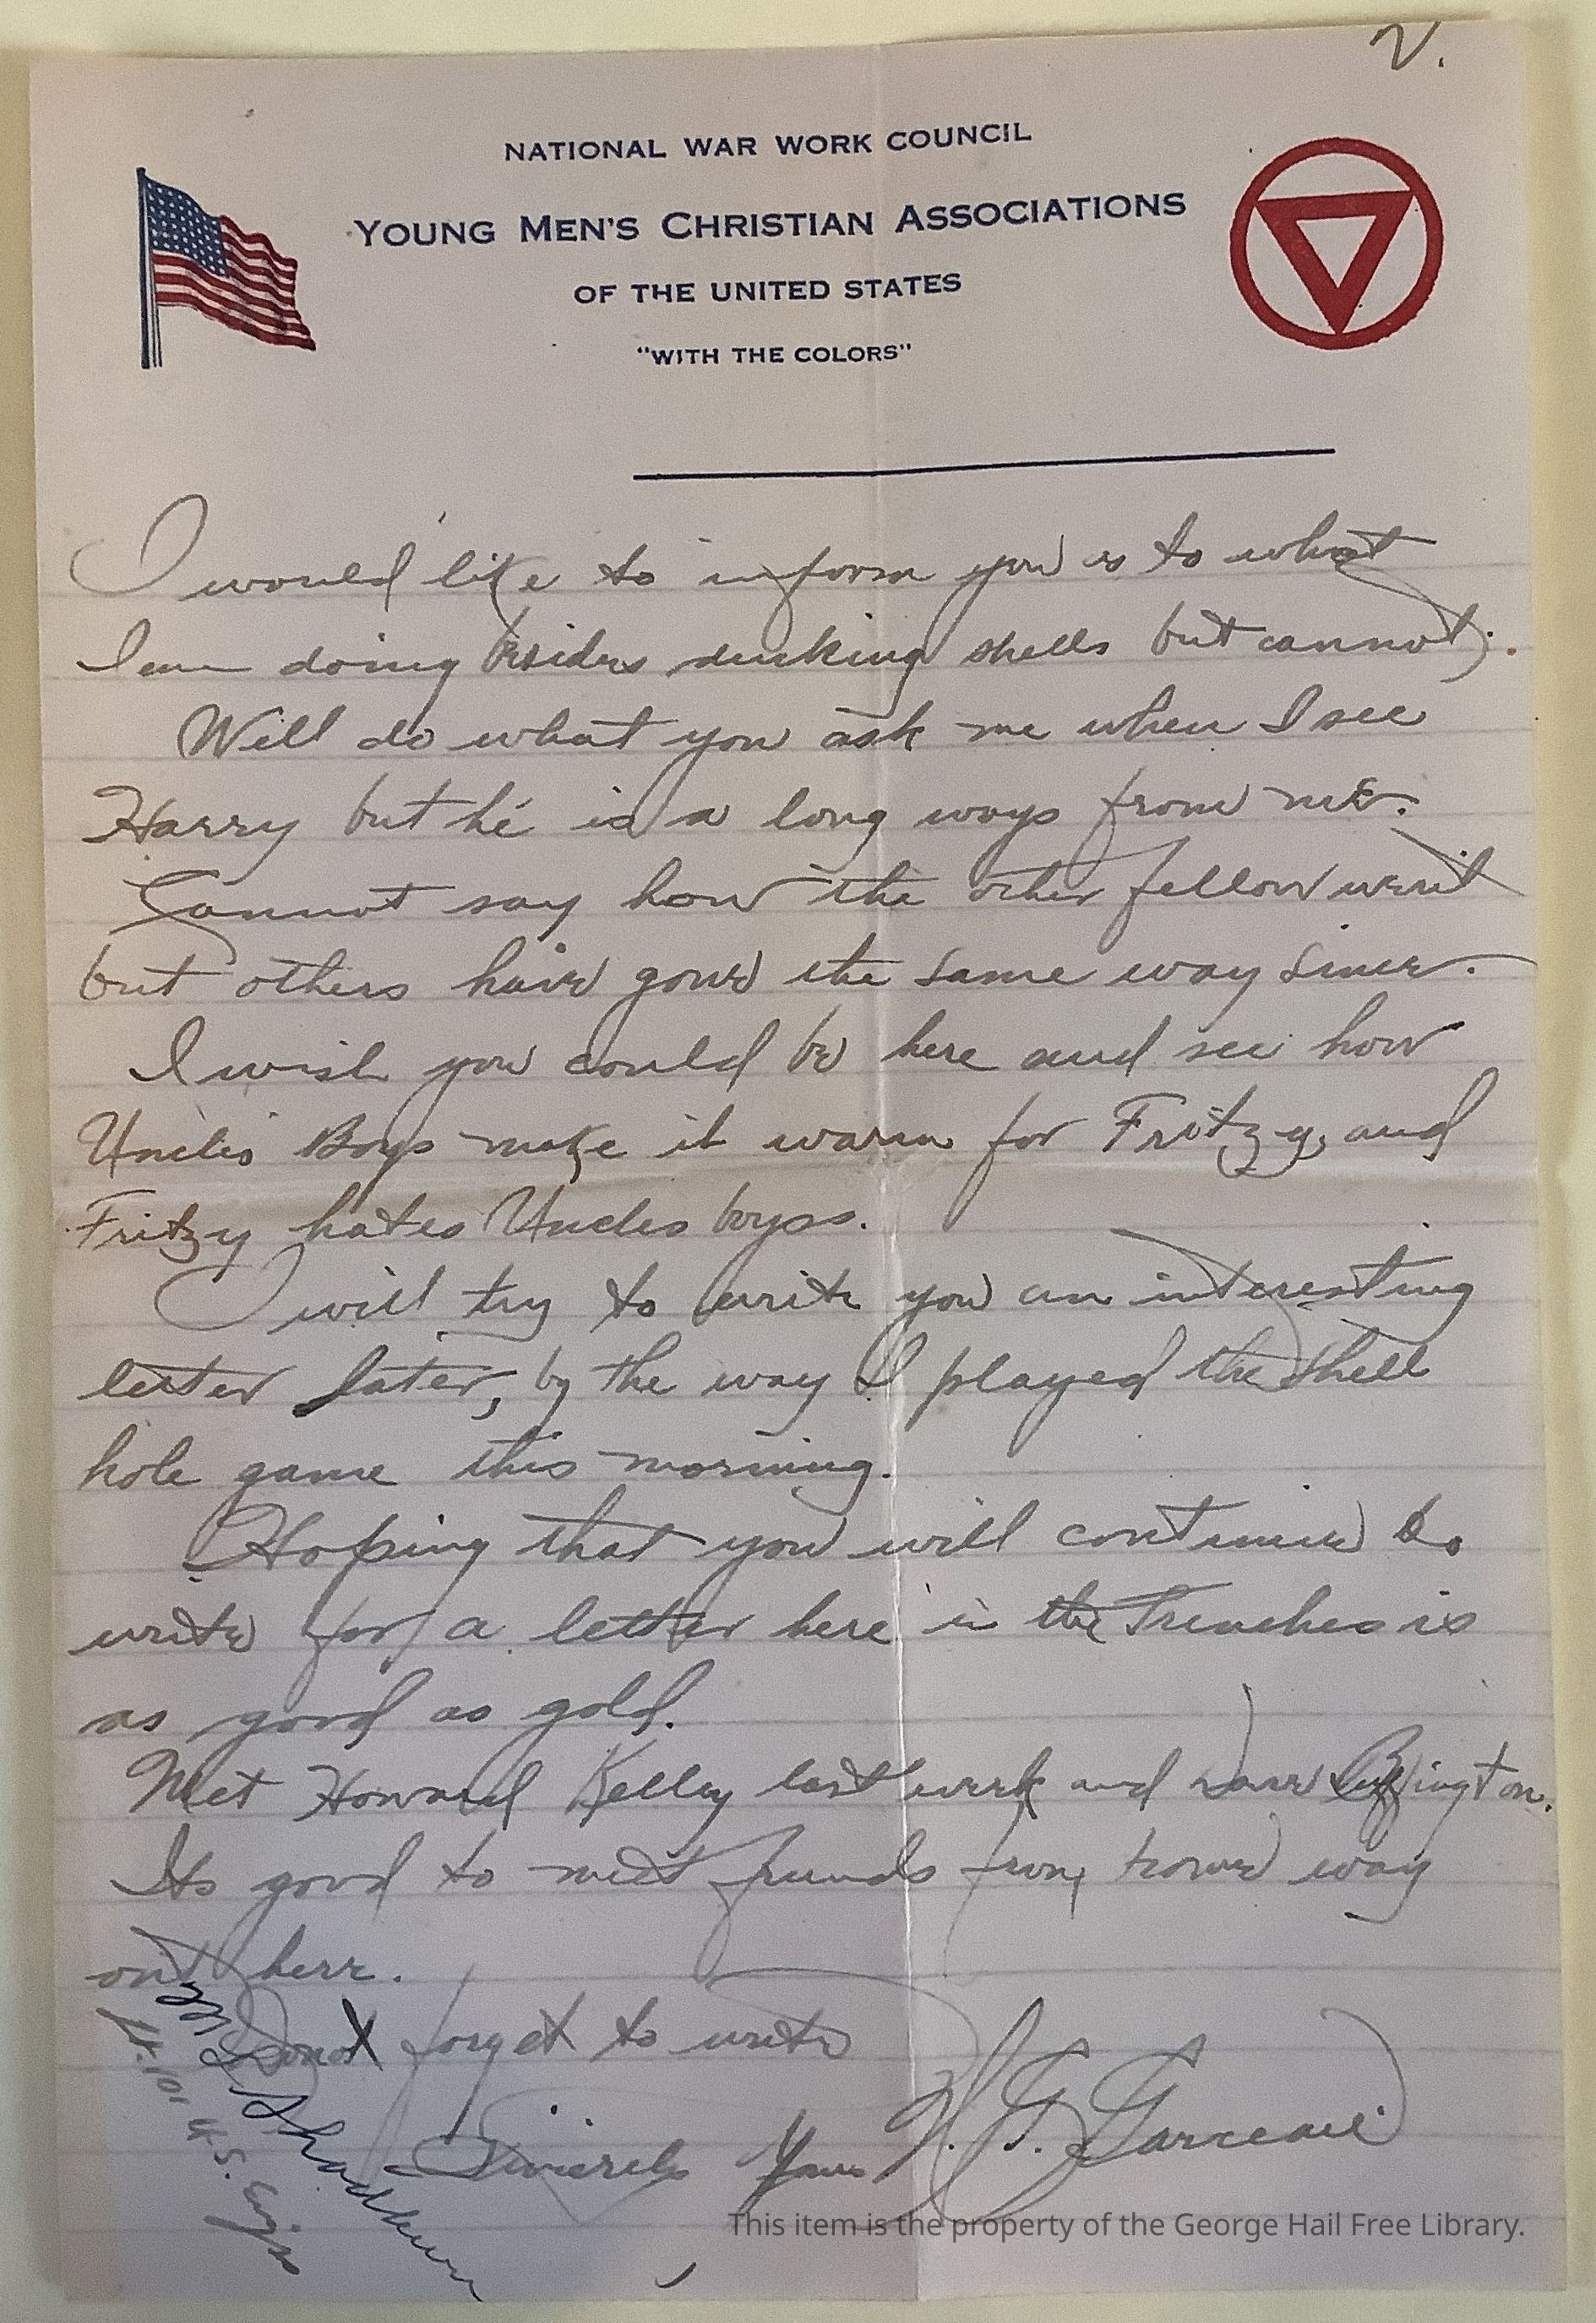 V.
NATIONAL WAR WORK COUNCIL
YOUNG MEN'S CHRISTIAN ASSOCIATIONS
OF THE UNITED STATES
"WITH THE COLORS"
I would like to inform you as to what
I am doing besides ducking shells but cannot.
Will do what you ask me when I see
Harry but he is a long ways from me.
Cannot say how the other fellow went
but others have gone the same way since.
I wish you could be here and see how
Uncles Boys make it warm for Fritzy, and
Fritzy hates Uncles boys.
I will try to write you an interesting
letter later, by the way I played the shell
hole game this morning.
Hoping that you will continue to
write for a letter here in the Trenches is
as good as gold.
Met Howard Kelly last week and Buffington.
Its good to meet friends from home way
out here.
Dont forget to write
Sincerely Yours H. G. Garceau
Shadburn
Lt. 101 U.S. Engrs
This item is the property of the George Hail Free Library.